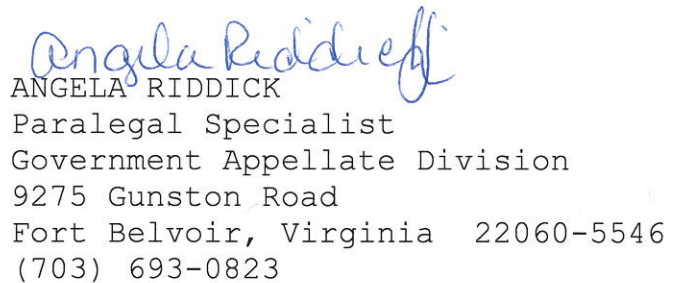 Angela Riddick
ANGELA RIDDICK
Paralegal Specialist
Government Appellate Division
9275 Gunston Road
Fort Belvoir, Virginia  22060-5546
(703) 693-0823